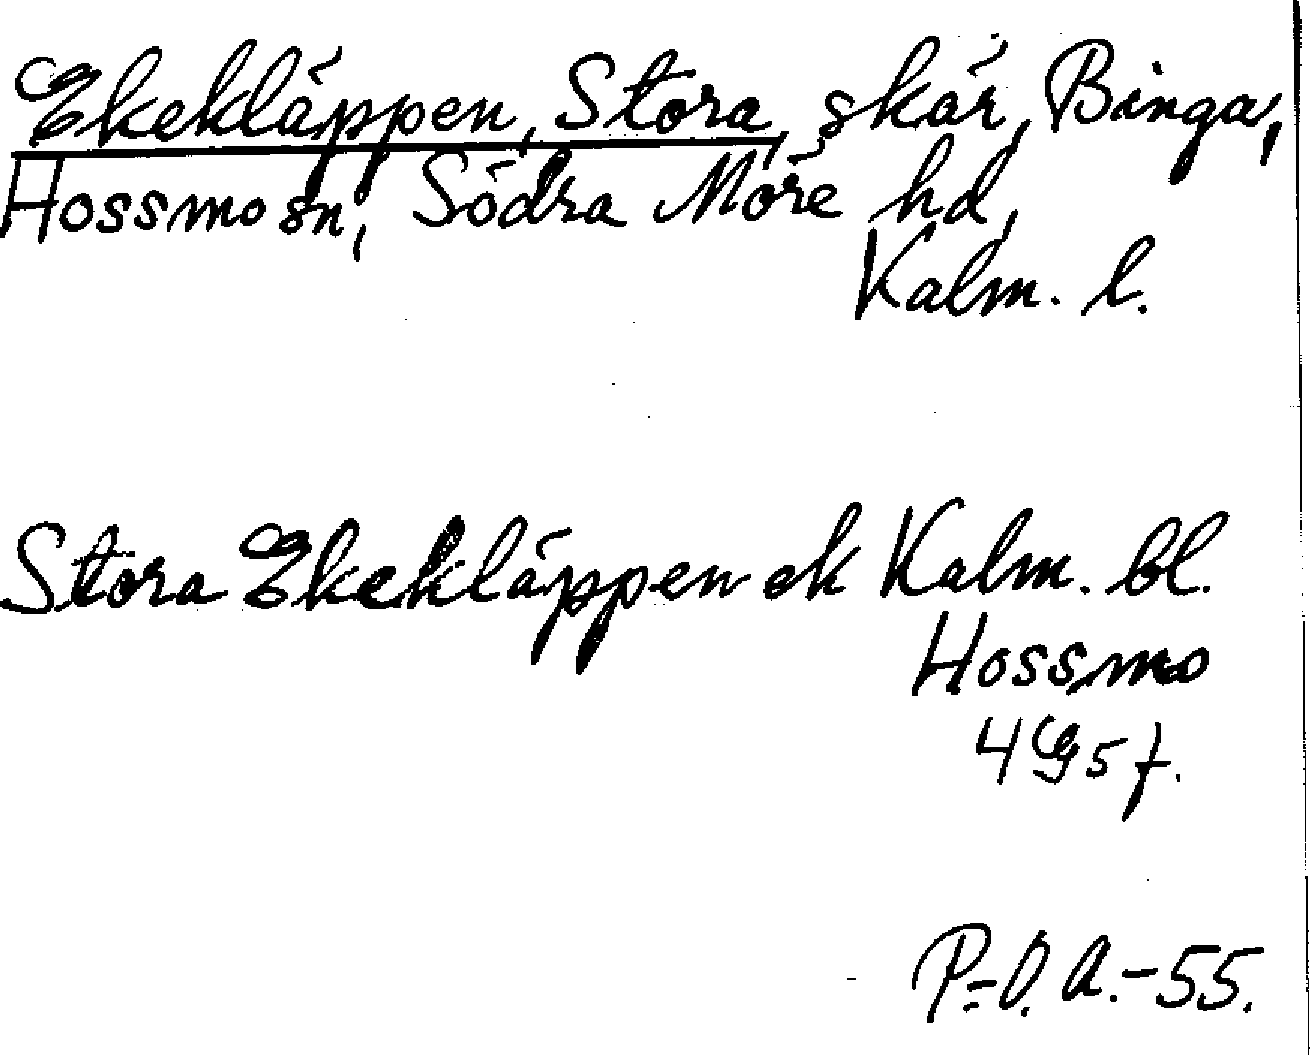 Ekekläppen, Stora, skär, Binga,
Hossmo sn, Södra Möre hd,
Kalm. l.
Stora Ekekläppen ek Kalm. bl.
Hossmo
4G5f.
P-O. A.-55.